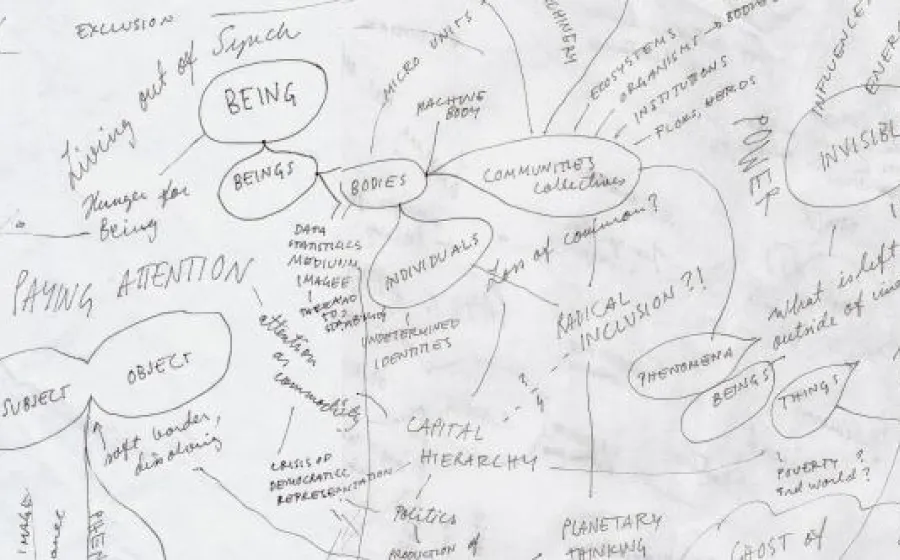 EXCLUSION
Living out of Synch
BEING
BEINGS
Hunger for
Being
MICRO UNITS
MACHINE
BODY
BODIES
COMMUNITIES
collectives
ECOSYSTEMS
ORGANISMS → BODIES
INSTITUTIONS
FLOKS, HERDS
POWER
INDIVIDUALS
DATA
STATISTICS
MEDIUM
IMAGEE
INDETERMINED
IDENTITIES
Loss of common?
RADICAL
INCLUSION?!
PAYING ATTENTION
attention
as
commodity
SUBJECT
OBJECT
soft border,
dissolving
CRISIS OF
DEMOCRATIC
REPRESENTATION
CAPITAL
HIERARCHY
Politics
PRODUCTION of
PLANETARY
THINKING
PHENOMENA
BEINGS
THINGS
What is left
outside of
POVERTY ?
3rd world?
GHOST of
IMAGE